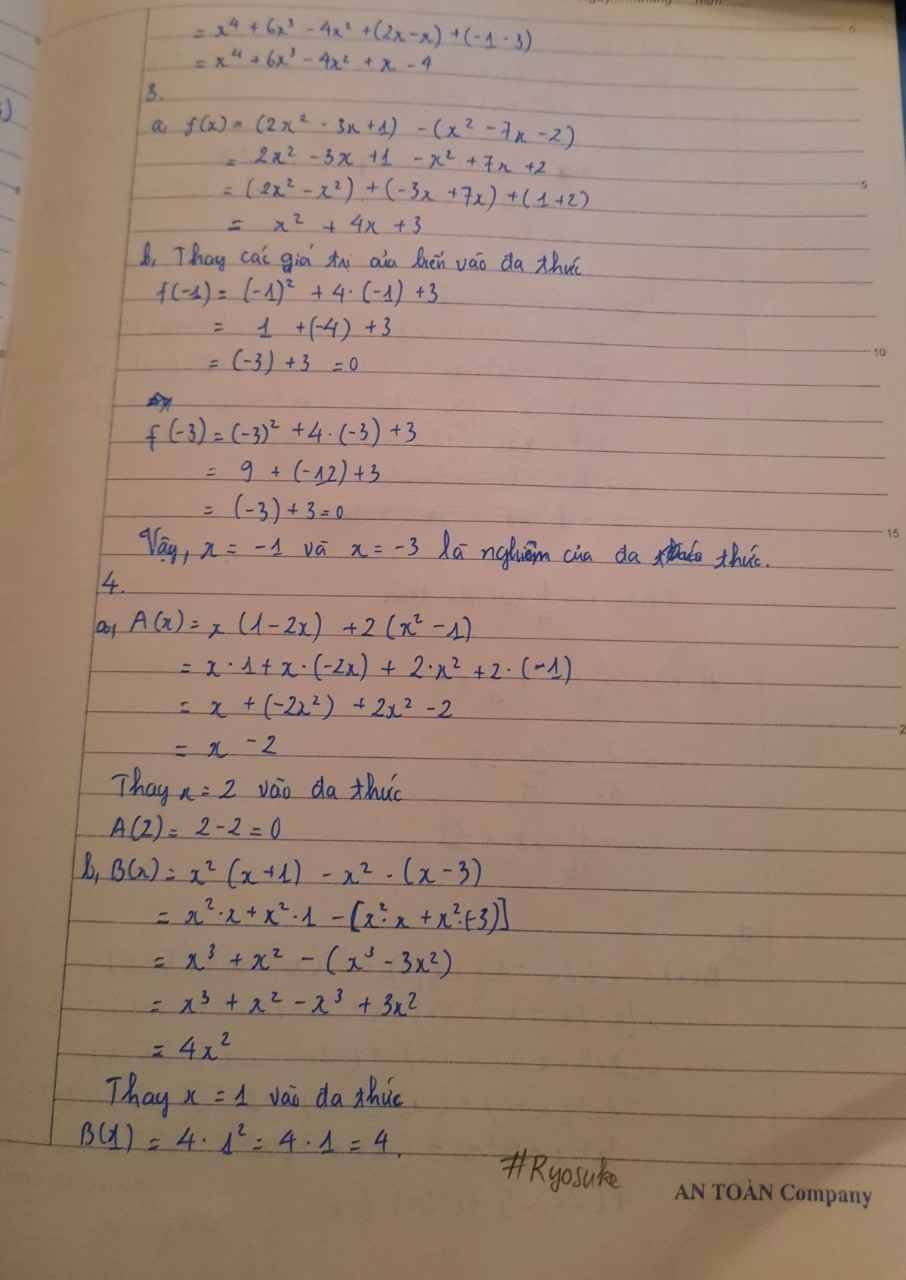 = x⁴ + 6x³ - 4x² + (2x - x) + (-1 - 3)
= x⁴ + 6x³ - 4x² + x - 4
3.
a, f(x) = (2x² - 3x + 1) - (x² - 7x - 2)
= 2x² - 3x + 1 - x² + 7x + 2
5
= (2x² - x²) + (-3x + 7x) + (1 + 2)
= x² + 4x + 3
b, Thay các giá trị của biến vào đa thức
f(-1) = (-1)² + 4 · (-1) + 3
= 1 + (-4) + 3
10
= (-3) + 3 = 0
f(-3) = (-3)² + 4 · (-3) + 3
= 9 + (-12) + 3
= (-3) + 3 = 0
15
Vậy, x = -1 và x = -3 là nghiệm của đa thức.
4.
a, A(x) = x (1 - 2x) + 2 (x² - 1)
= x · 1 + x · (-2x) + 2 · x² + 2 · (-1)
= x + (-2x²) + 2x² - 2
= x - 2
Thay x = 2 vào đa thức
A(2) = 2 - 2 = 0
b, B(x) = x² (x + 1) - x² · (x - 3)
= x² · x + x² · 1 - [x² · x + x² · (-3)]
= x³ + x² - (x³ - 3x²)
= x³ + x² - x³ + 3x²
= 4x²
Thay x = 1 vào đa thức
B(1) = 4 · 1² = 4 · 1 = 4.
#Ryosuke
AN TOÀN Company